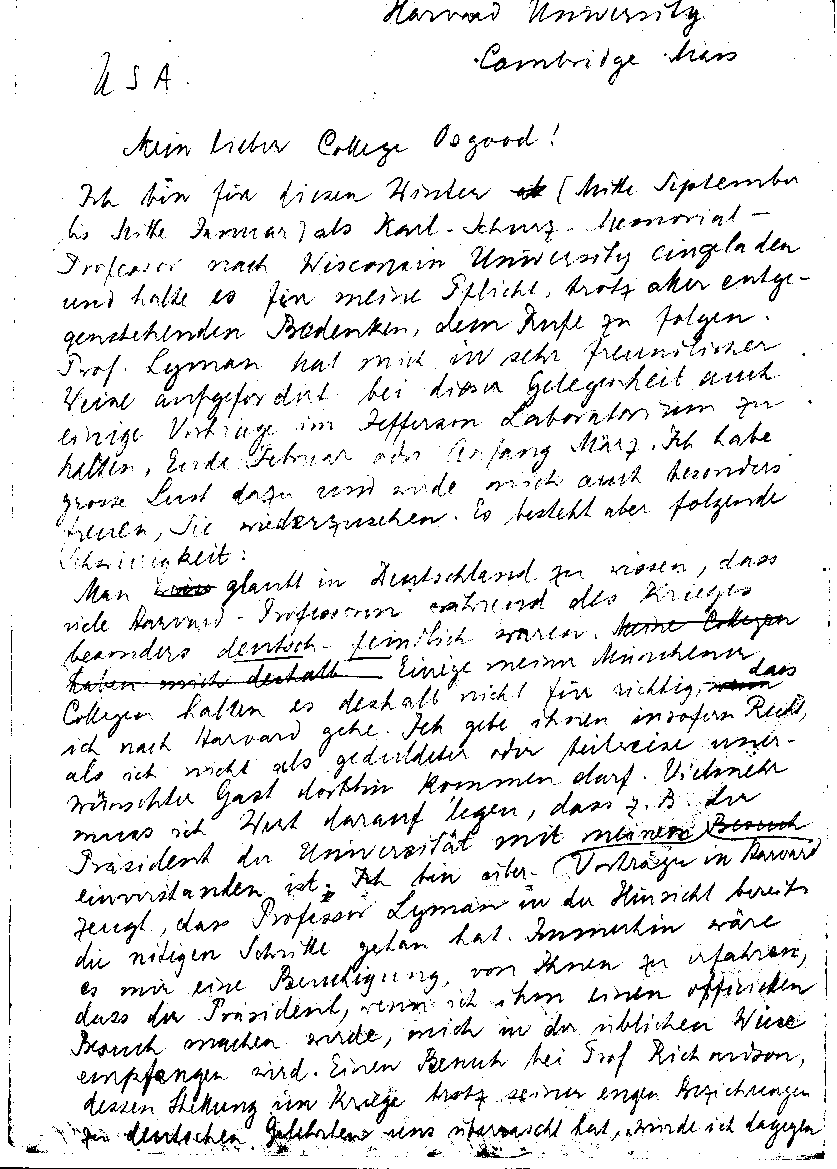 Harvard University
Cambridge Mass
USA.
Mein lieber College Osgood!
Ich bin für diesen Winter als (Mitte September
bis Mitte Januar) als Karl-Schurz-Memorial-
Professor nach Wisconsin University eingeladen
und halte es für meine Pflicht, trotz aller entge-
genstehenden Bedenken, dem Rufe zu folgen.
Prof. Lyman hat mich in sehr freundlicher
Weise aufgefordert bei dieser Gelegenheit auch
einige Vorträge im Jefferson Laboratorium zu
halten, Ende Februar oder Anfang März. Ich habe
grosse Lust dazu und würde mich auch besonders
freuen, Sie wiederzusehen. Es besteht aber folgende
Schwierigkeit:
Man glaubt in Deutschland zu wissen, dass
viele Harvard-Professoren während des Krieges
besonders deutsch-feindlich waren. Meine Collegen
haben mich deshalb Einige meiner Münchener
Collegen halten es deshalb nicht für richtig, dass
ich nach Harvard gehe. Ich gebe ihnen insofern Recht,
als ich nicht als geduldeter oder teilweise uner-
wünschter Gast dorthin kommen darf. Vielmehr
muss ich Wert darauf legen, dass z. B. der
Präsident der Universität mit meinen Besuch
einverstanden ist. Ich bin über- Vorträgen in Harvard
zeugt, dass Professor Lyman in der Hinsicht bereits
die nötigen Schritte getan hat. Immerhin wäre
es mir eine Beruhigung, von Ihnen zu erfahren,
dass der Präsident, wenn ich ihm einen officiellen
Besuch machen würde, mich in der üblichen Weise
empfangen wird. Einen Besuch bei Prof Richardson,
dessen Stellung im Kriege trotz seiner engen Beziehungen
zu deutschen Gelehrten uns überrascht hat, würde ich dagegen